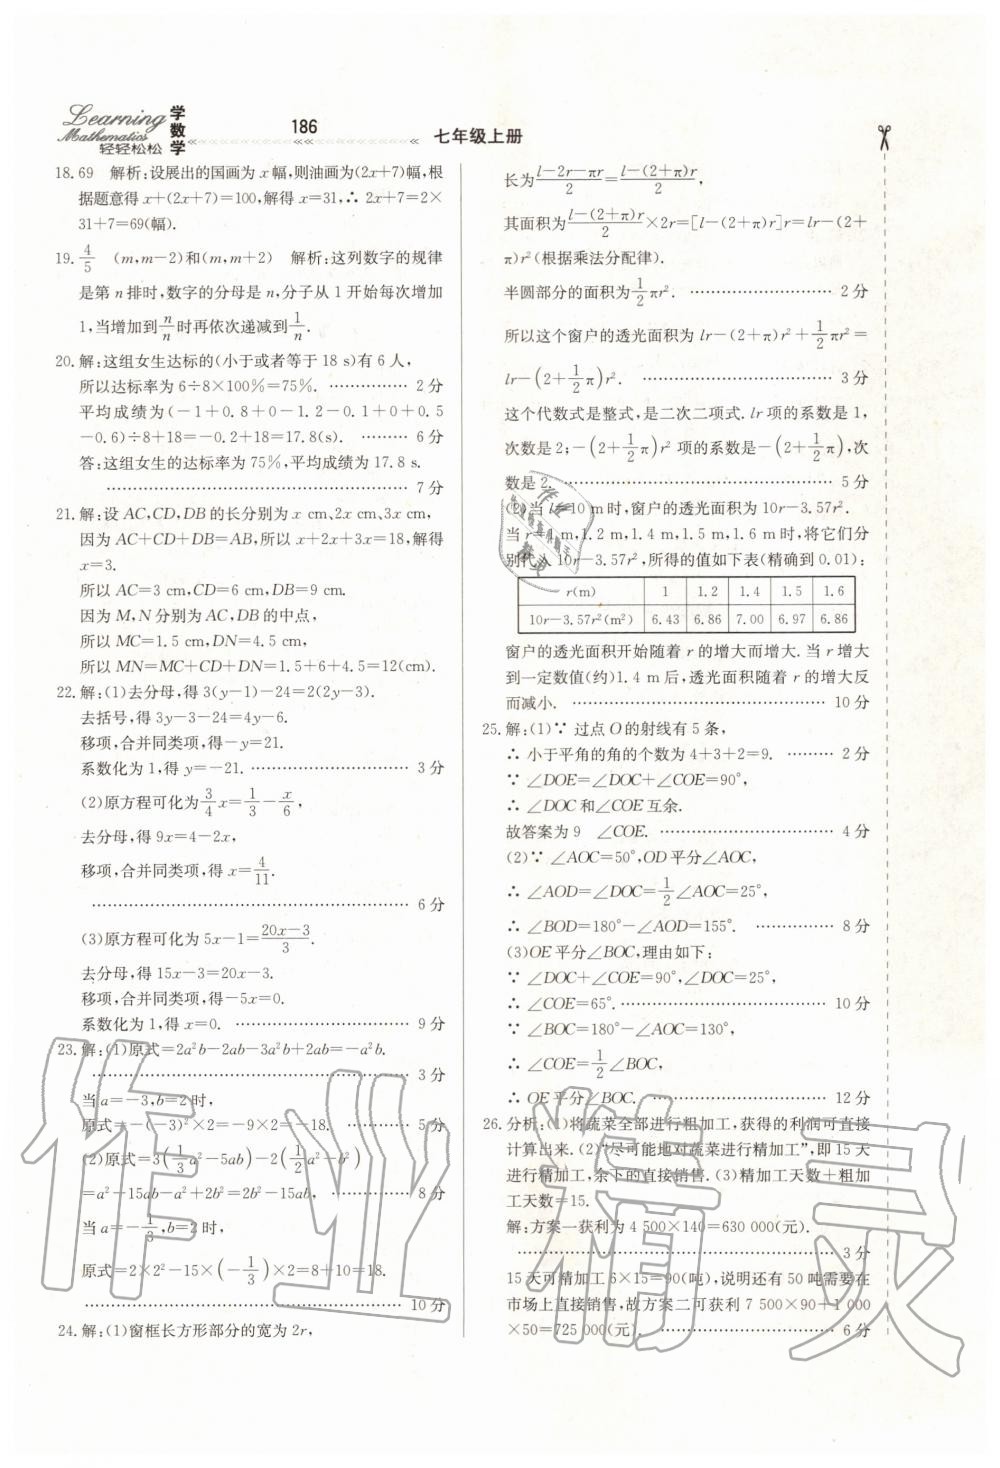 Learning
Mathematics
轻轻松松
学数学
186
七年级上册
18. 69 解析:设展出的国画为 x 幅,则油画为(2x+7)幅,根
据题意得 x+(2x+7)=100,解得 x=31,∴ 2x+7=2×
31+7=69(幅).
19. 4/5 (m,m-2)和(m,m+2) 解析:这列数字的规律
是第 n 排时,数字的分母是 n,分子从 1 开始每次增加
1,当增加到 n/n 时再依次递减到 1/n.
20. 解:这组女生达标的(小于或者等于 18 s)有 6 人,
所以达标率为 6÷8×100%=75%. …………… 2 分
平均成绩为(-1+0.8+0-1.2-0.1+0+0.5
-0.6)÷8+18=-0.2+18=17.8(s). ……… 6 分
答:这组女生的达标率为 75%,平均成绩为 17.8 s.
…………………………………………… 7 分
21. 解:设 AC,CD,DB 的长分别为 x cm、2x cm、3x cm,
因为 AC+CD+DB=AB,所以 x+2x+3x=18,解得
x=3.
所以 AC=3 cm,CD=6 cm,DB=9 cm.
因为 M、N 分别为 AC,DB 的中点,
所以 MC=1.5 cm,DN=4.5 cm,
所以 MN=MC+CD+DN=1.5+6+4.5=12(cm).
22. 解:(1)去分母,得 3(y-1)-24=2(2y-3).
去括号,得 3y-3-24=4y-6.
移项,合并同类项,得-y=21.
系数化为 1,得 y=-21. …………………… 3 分
(2)原方程可化为 3/4 x=1/3-x/6,
去分母,得 9x=4-2x,
移项,合并同类项,得 x=4/11.
…………………………………………… 6 分
(3)原方程可化为 5x-1=(20x-3)/3.
去分母,得 15x-3=20x-3.
移项,合并同类项,得-5x=0.
系数化为 1,得 x=0. ……………………… 9 分
23. 解:(1)原式=2a²b-2ab-3a²b+2ab=-a²b.
…………………………………………… 3 分
当 a=-3,b=2 时,
原式=-(-3)²×2=-9×2=-18. ………… 5 分
(2)原式=3(1/3 a²-5ab)-2(1/2 a²-b²)
=a²-15ab-a²+2b²=2b²-15ab, ………… 8 分
当 a=-1/3,b=2 时,
原式=2×2²-15×(-1/3)×2=8+10=18.
…………………………………………… 10 分
24. 解:(1)窗框长方形部分的宽为 2r,
长为 (l-2r-πr)/2=(l-(2+π)r)/2,
其面积为 (l-(2+π)r)/2×2r=[l-(2+π)r]r=lr-(2+
π)r²(根据乘法分配律).
半圆部分的面积为 1/2 πr². …………………… 2 分
所以这个窗户的透光面积为 lr-(2+π)r²+1/2 πr²=
lr-(2+1/2 π)r². …………………………… 3 分
这个代数式是整式,是二次二项式. lr 项的系数是 1,
次数是 2;-(2+1/2 π)r² 项的系数是-(2+1/2 π),次
数是 2. ……………………………………… 5 分
(2)当 l=10 m时,窗户的透光面积为 10r-3.57r².
当 r=1 m,1.2 m,1.4 m,1.5 m,1.6 m 时,将它们分
别代入 10r-3.57r²,所得的值如下表(精确到 0.01):
r(m) 1 1.2 1.4 1.5 1.6
10r-3.57r²(m²) 6.43 6.86 7.00 6.97 6.86
窗户的透光面积开始随着 r 的增大而增大. 当 r 增大
到一定数值(约)1.4 m 后,透光面积随着 r 的增大反
而减小. ……………………………………… 10 分
25. 解:(1)∵ 过点 O 的射线有 5 条,
∴ 小于平角的角的个数为 4+3+2=9. ……… 2 分
∵ ∠DOE=∠DOC+∠COE=90°,
∴ ∠DOC 和∠COE 互余.
故答案为 9 ∠COE. ………………………… 4 分
(2)∵ ∠AOC=50°,OD 平分∠AOC,
∴ ∠AOD=∠DOC=1/2∠AOC=25°,
∴ ∠BOD=180°-∠AOD=155°. …………… 8 分
(3)OE 平分∠BOC,理由如下:
∵ ∠DOC+∠COE=90°,∠DOC=25°,
∴ ∠COE=65°. ……………………………… 10 分
∵ ∠BOC=180°-∠AOC=130°,
∴ ∠COE=1/2∠BOC,
∴ OE 平分∠BOC. ………………………… 12 分
26. 分析:(1)将蔬菜全部进行粗加工,获得的利润可直接
计算出来. (2)“尽可能地对蔬菜进行精加工”,即 15 天
进行精加工,余下的直接销售. (3)精加工天数+粗加
工天数=15.
解:方案一获利为 4 500×140=630 000(元).
…………………………………………… 3 分
15 天可精加工 6×15=90(吨),说明还有 50 吨需要在
市场上直接销售,故方案二可获利 7 500×90+1 000
×50=725 000(元). ………………………… 6 分
作业精灵